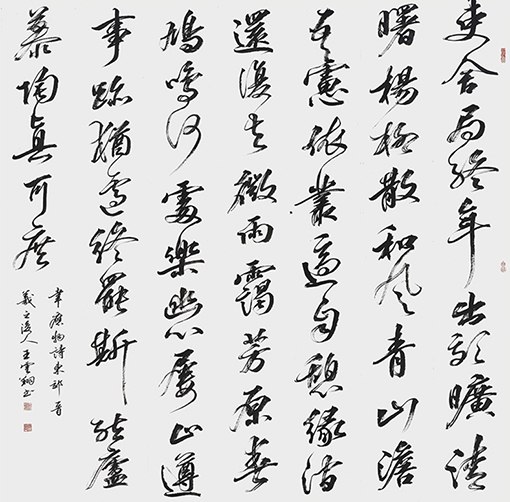 吏舍局終年出郊曠清
曙楊柳散和風青山澹
吾慮依叢適自憩緣澗
還復去微雨靄芳原春
鳩鳴何處樂幽心屢止遵
事跡猶遽終罷斯結廬
慕陶真可庶
韋應物詩東郊
羲之後人王雲翔書